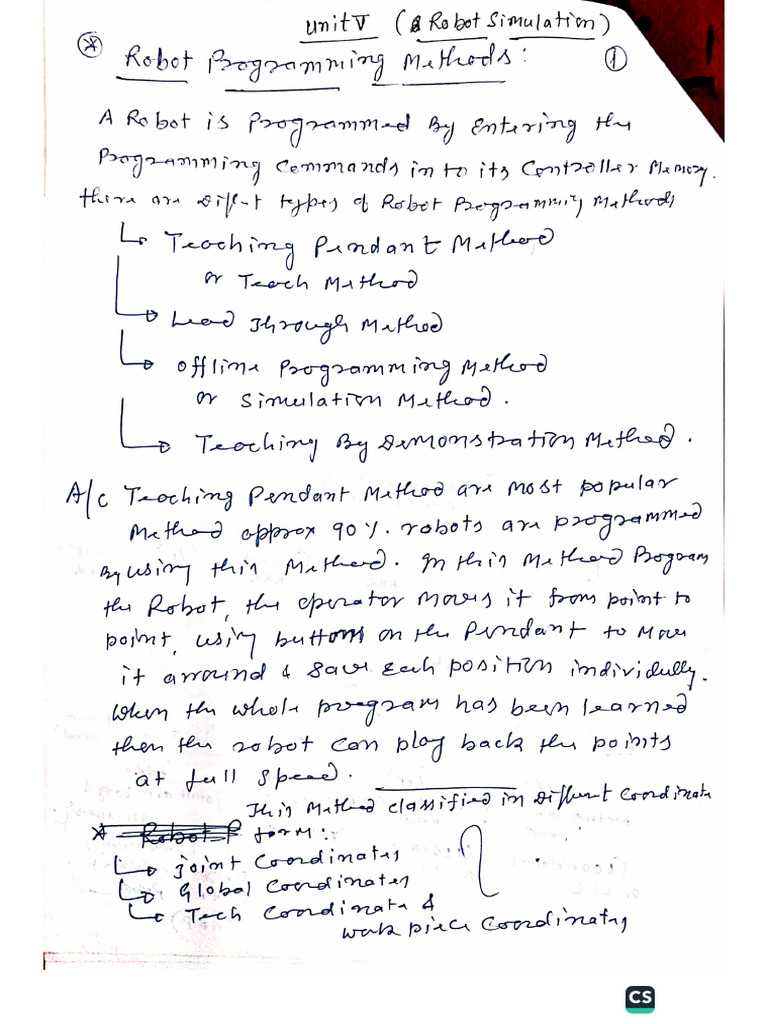 Unit V (Robot Simulation)
Robot Programming Methods: 1
A Robot is Programmed By Entering the
Programming Commands in to its Controller Memory.
there are Differt types of Robot Programming Methods
Teaching Pendant Method
or Teach Method
Lead Through Method
Offline Programming Method
or Simulation Method.
Teaching By Demonstration Method.
A/c Teaching Pendant Method are most popular
Method approx 90%. robots are programmed
By using this Method. In this Method Program
the Robot, the operator moves it from point to
point, using buttons on the Pendant to move
it arround & save each position individully.
When the whole program has been learned
then the robot can play back the points
at full speed.
This Method classified in Different Coordinate
* Robot P form:
Joint Coordinates
Global Coordinates
Tech Coordinate &
work piece Coordinates
CS